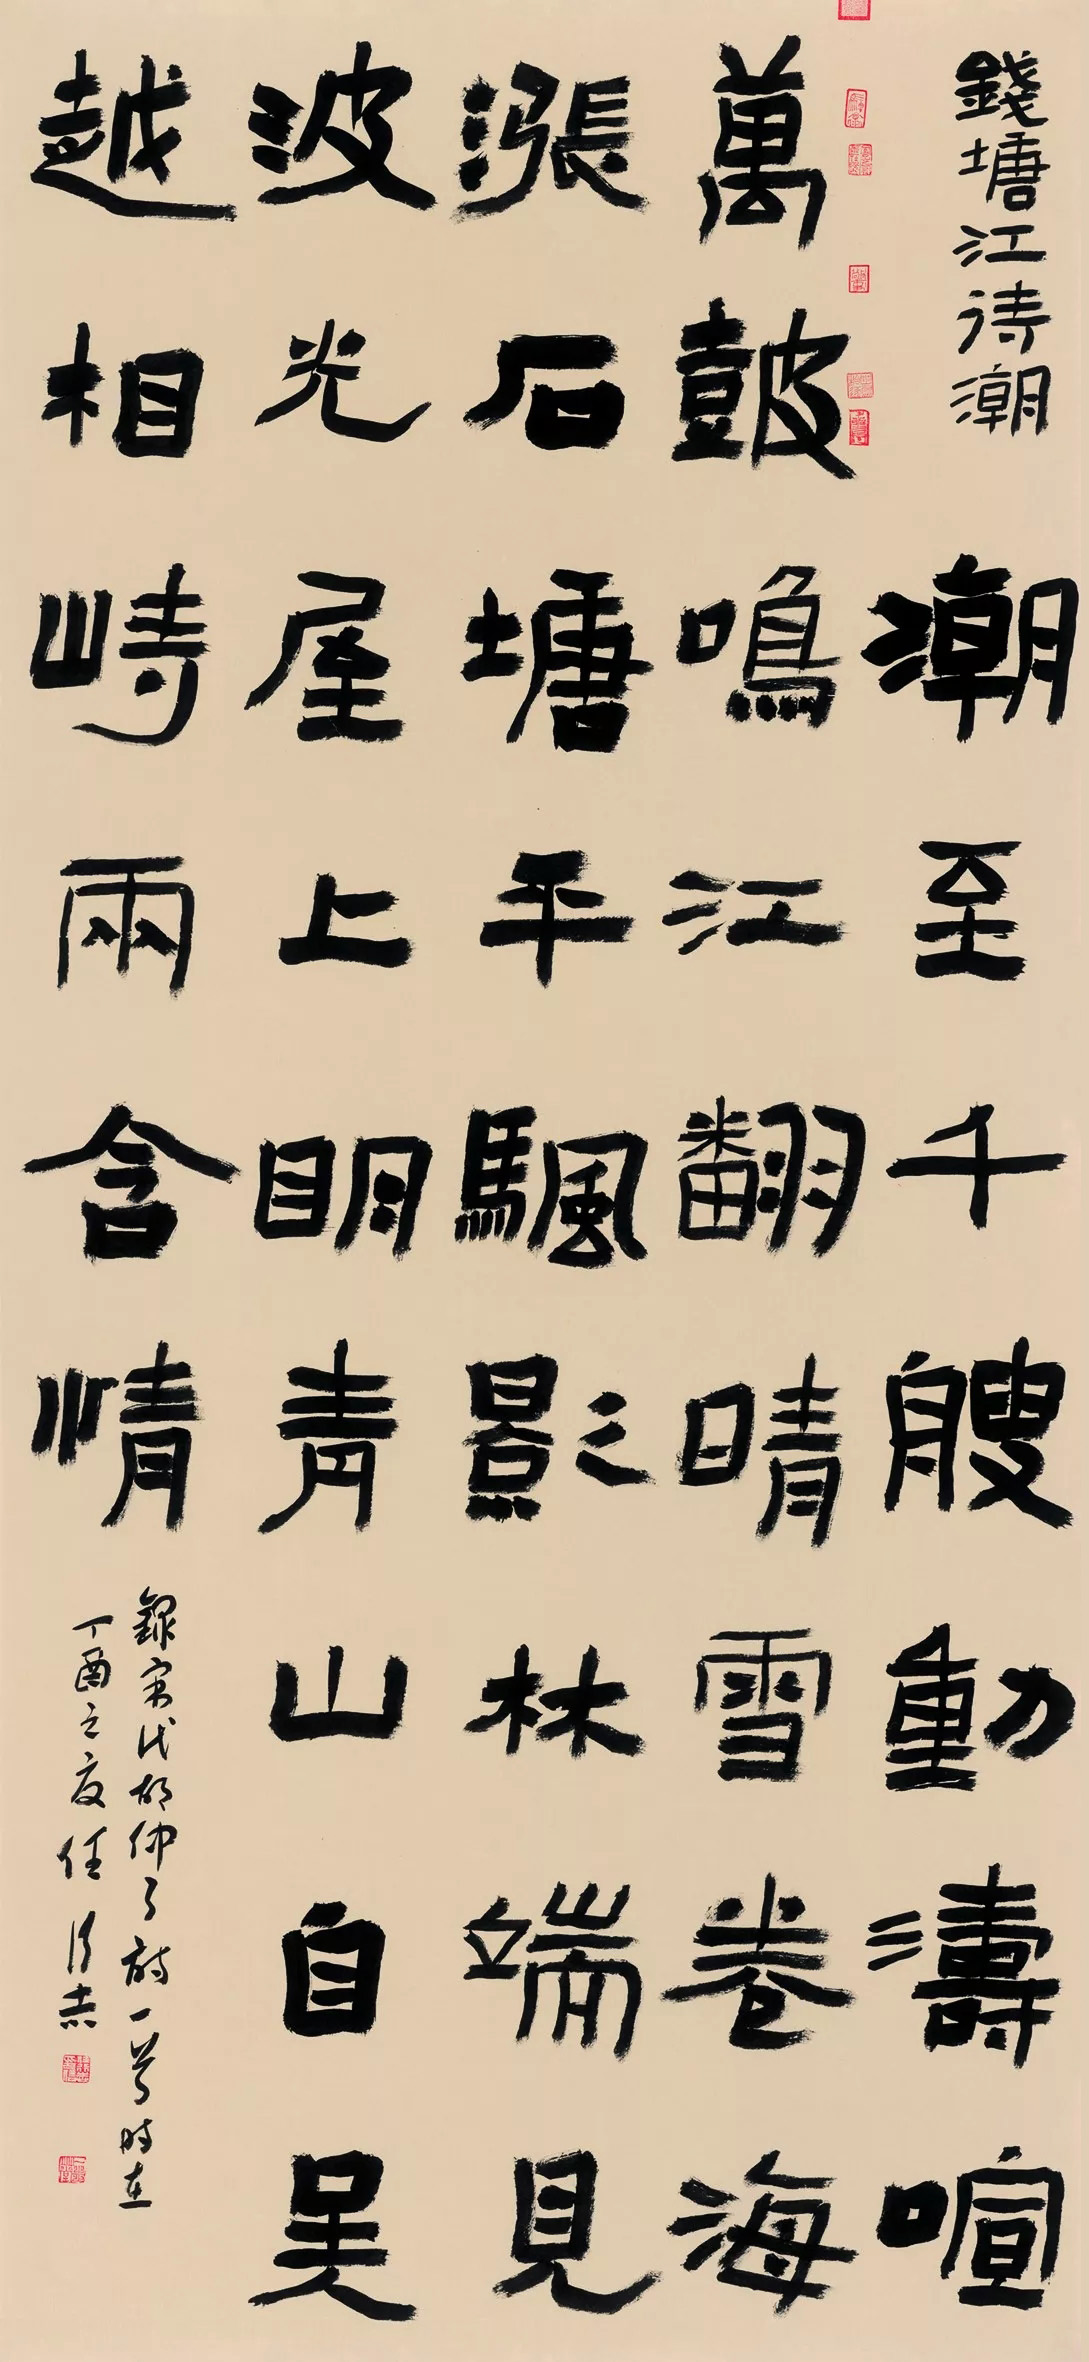 錢塘江待潮
潮至千艘動濤喧
萬皷鳴江翻晴雪卷海
漲石塘平颿影林端見
波光屋上眀青山自吳
越相峙兩含情
錄宋代胡仲弓詩一首時在
丁酉之夏任